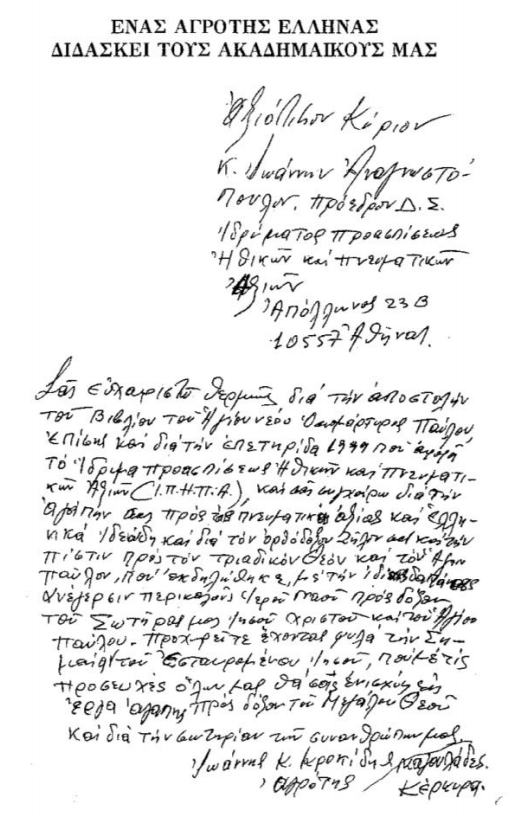 ΕΝΑΣ ΑΓΡΟΤΗΣ ΕΛΛΗΝΑΣ
ΔΙΔΑΣΚΕΙ ΤΟΥΣ ΑΚΑΔΗΜΑΪΚΟΥΣ ΜΑΣ
Ἀξιότιμον Κύριον
κ. Ἰωάννην Ἀναγνωστό-
πουλον. Πρόεδρον Δ.Σ.
Ἱδρύματος προασπίσεως
Ἠθικῶν καί Πνευματικῶν
Ἀξιῶν
Ἀπόλλωνος 23 Β
10557 Ἀθῆναι.
Σᾶς εὐχαριστῶ θερμῶς διά τήν ἀποστολήν
τοῦ Βιβλίου τοῦ Ἁγίου νέου Ὁσιομάρτυρος Παύλου
ἐπίσης καί διά τήν ἐπετηρίδα 1999 πού ἀφορᾶ
τό Ἵδρυμα προασπίσεως Ἠθικῶν καί Πνευματι-
κῶν Ἀξιῶν (Ι.Π.Η.Π.Α.), καί σᾶς συγχαίρω διά τήν
ἀγάπην σας πρός τάς πνευματικάς ἀξίας καί Ἑλλη-
νικά ἰδεώδη καί διά τόν ὀρθόδοξον ζῆλον σας καί τήν
πίστιν πρός τόν τριαδικόν Θεόν καί τόν Ἅγιον
Παῦλον, πού ἐκδηλώθηκε, μέ τήν ἰδίαις δαπάναις
ἀνέγερσιν περικαλοῦς Ἱεροῦ Ναοῦ πρός δόξαν
τοῦ Σωτῆρος μας Ἰησοῦ Χριστοῦ καί τοῦ Ἁγίου
Παύλου. Προχωρεῖτε ἔχοντας ψηλά τήν Ση-
μαία τοῦ Ἐσταυρωμένου Ἰησοῦ, πού μέ τίς
προσευχές ὅλων μας θά σᾶς ἐνισχύῃ εἰς
ἔργα ἀγάπης πρός δόξαν τοῦ Μεγάλου Θεοῦ
καί διά τήν σωτηρίαν τῶν συνανθρώπων μας
Ἰωάννης Κ.
ἀγρότης Κέρκυρα.